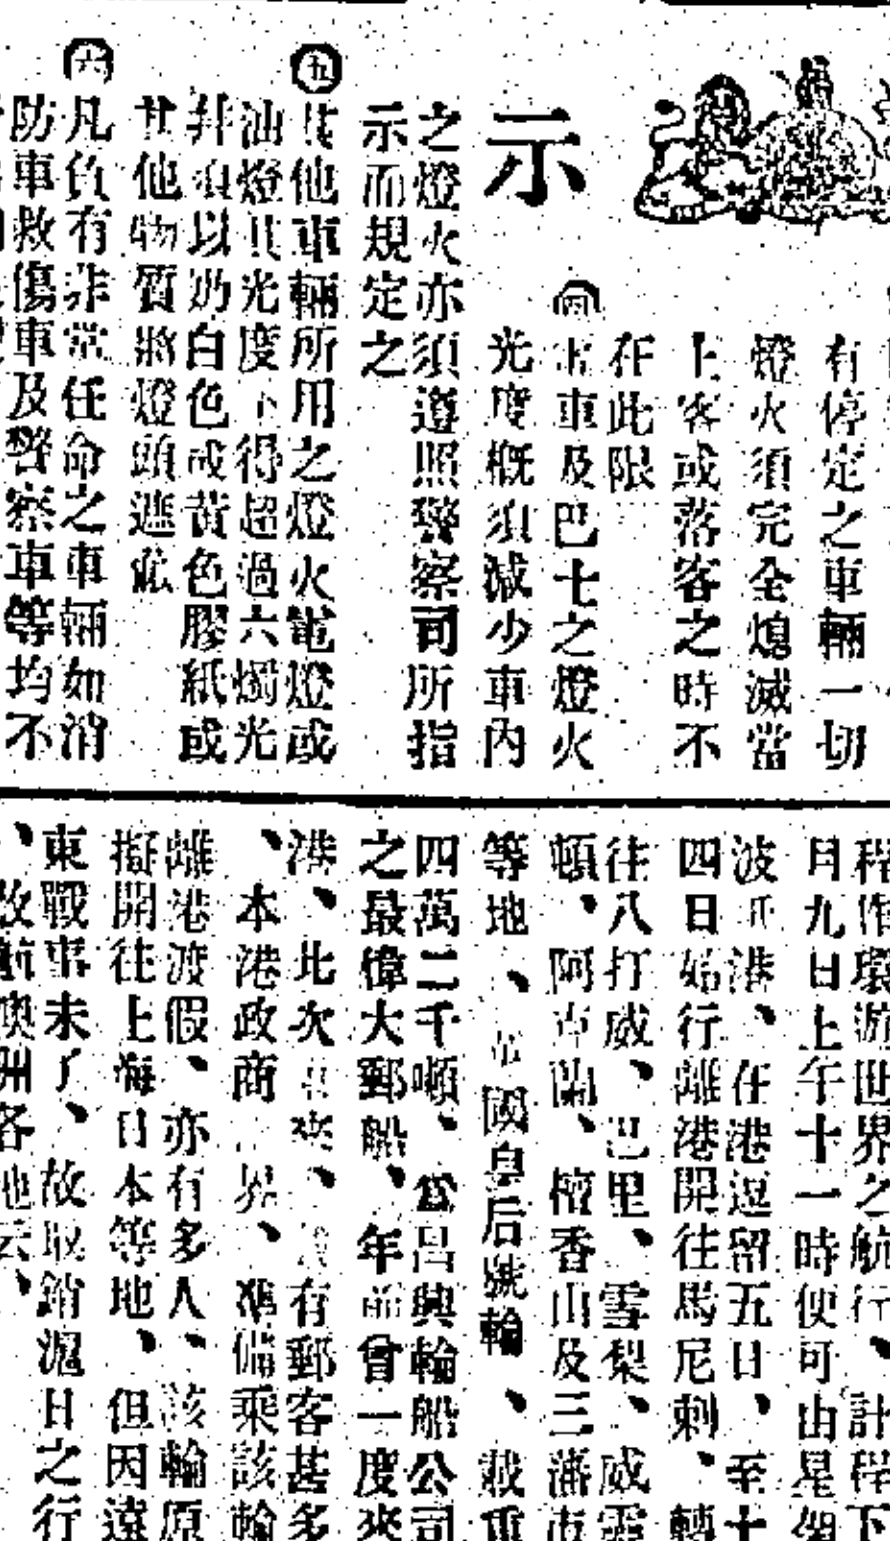 有停定之車輛一切
燈火須完全熄滅當
上客或落客之時不
在此限
㊃ 電車及巴士之燈火
光度概須減少車內
示
之燈火亦須遵照警察司所指
示而規定之
㊄ 其他車輛所用之燈火電燈或
油燈其光度不得超過六燭光
幷須以奶白色或黃色膠紙或
其他物質將燈頭遮
㊅ 凡負有非常任命之車輛如消
防車救傷車及警察車等均不
程作環游世界之航行、計程下
月九日上午十一時便可由星
波 港、在港逗留五日、至十
四日始行離港開往馬尼剌、轉
往八打威、巴里、雪梨、威靈
頓、阿 蘭、檀香山及三藩市
等地、 國皇后號輪、載重
四萬二千噸、爲昌興輪船公司
之最偉大郵船、年前曾一度來
港、此次 來、 有郵客甚多
、本港政商 界、準備乘該輪
離港渡假、亦有多人、該輪原
擬開往上海日本等地、但因遠
東戰事未了、故取銷滬日之行
、故航澳洲各地云、